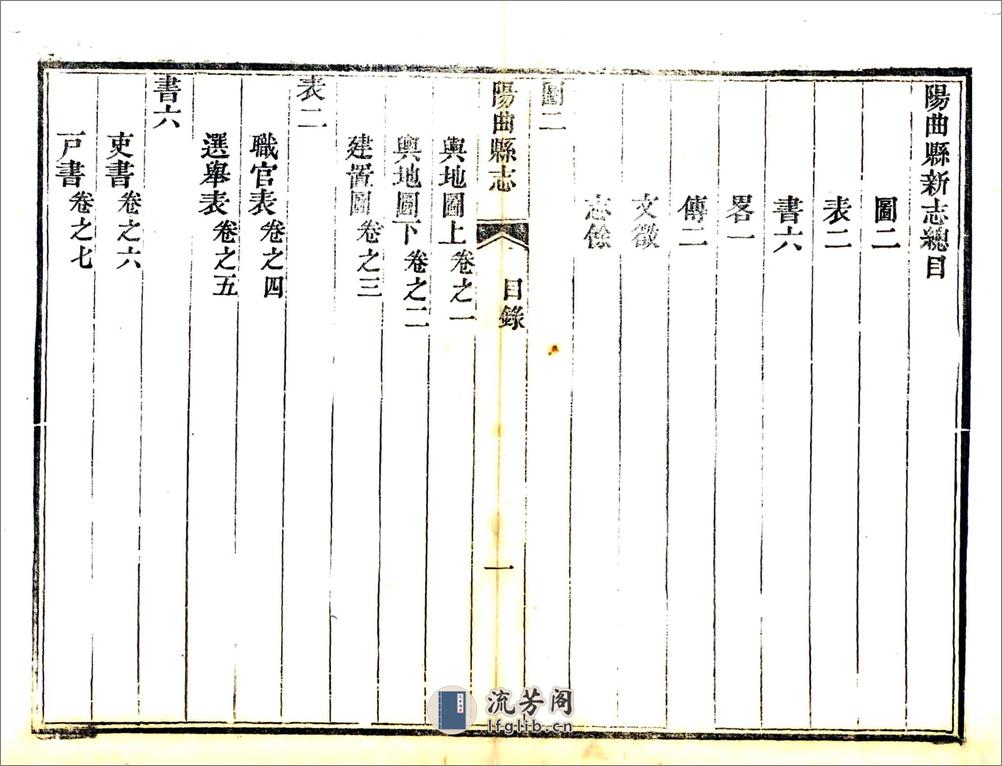 陽曲縣新志總目
圖二
表二
書六
畧一
傳二
文徵
志餘
圖二
陽曲縣志
目錄
一
輿地圖上 卷之一
輿地圖下 卷之二
建置圖 卷之三
表二
職官表 卷之四
選舉表 卷之五
書六
吏書 卷之六
戸書 卷之七
流芳阁
lfglib.cn